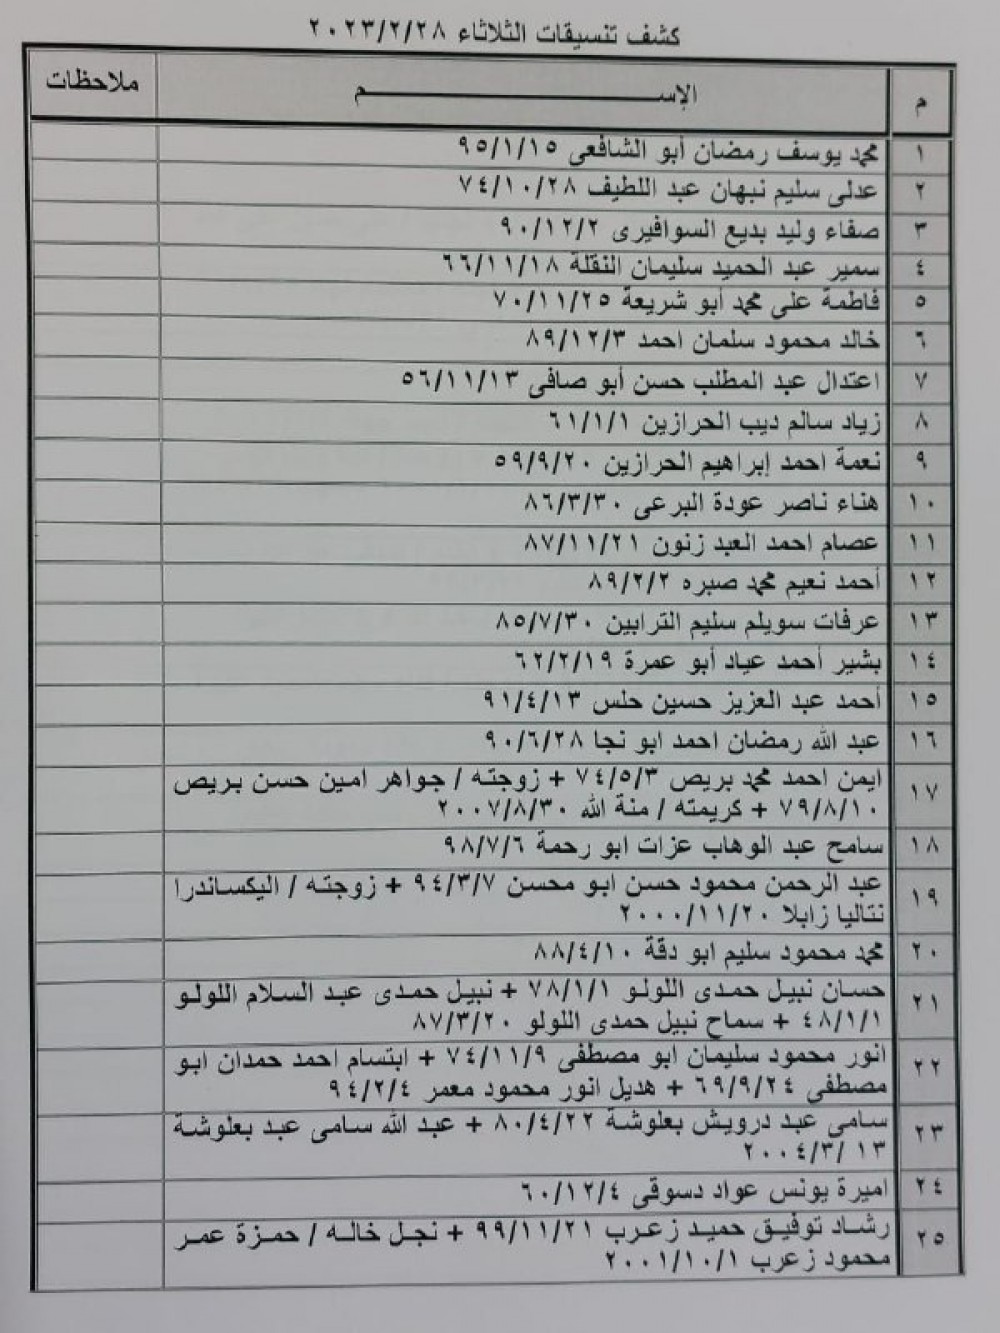 كشف تنسيقات الثلاثاء ٢٠٢٣/٢/٢٨
م الإســـــــــــــم ملاحظات
١ محمد يوسف رمضان أبو الشافعى ٩٥/١/١٥
٢ عدلى سليم نبهان عبد اللطيف ٧٤/١٠/٢٨
٣ صفاء وليد بديع السوافيرى ٩٠/١٢/٢
٤ سمير عبد الحميد سليمان النقلة ٦٦/١١/١٨
٥ فاطمة على محمد أبو شريعة ٧٠/١١/٢٥
٦ خالد محمود سلمان احمد ٨٩/١٢/٣
٧ اعتدال عبد المطلب حسن أبو صافى ٥٦/١١/١٣
٨ زياد سالم ديب الحرازين ٦١/١/١
٩ نعمة احمد إبراهيم الحرازين ٥٩/٩/٢٠
١٠ هناء ناصر عودة البرعى ٨٦/٣/٣٠
١١ عصام احمد العبد زنون ٨٧/١١/٢١
١٢ أحمد نعيم محمد صبره ٨٩/٢/٢
١٣ عرفات سويلم سليم الترابين ٨٥/٧/٣٠
١٤ بشير أحمد عياد أبو عمرة ٦٢/٢/١٩
١٥ أحمد عبد العزيز حسين حلس ٩١/٤/١٣
١٦ عبد الله رمضان احمد ابو نجا ٩٠/٦/٢٨
١٧ ايمن احمد محمد بريص ٧٤/٥/٣ + زوجته / جواهر امين حسن بريص
٧٩/٨/١٠ + كريمته / منة الله ٢٠٠٧/٨/٣٠
١٨ سامح عبد الوهاب عزات ابو رحمة ٩٨/٧/٦
١٩ عبد الرحمن محمود حسن ابو محسن ٩٤/٣/٧ + زوجته / اليكساندرا
نتاليا زابلا ٢٠٠٠/١١/٢٠
٢٠ محمد محمود سليم ابو دقة ٨٨/٤/١٠
٢١ حسان نبيل حمدى اللولو ٧٨/١/١ + نبيل حمدى عبد السلام اللولو
٤٨/١/١ + سماح نبيل حمدى اللولو ٨٧/٣/٢٠
٢٢ انور محمود سليمان ابو مصطفى ٧٤/١١/٩ + ابتسام احمد حمدان ابو
مصطفى ٦٩/٩/٢٤ + هديل انور محمود معمر ٩٤/٢/٤
٢٣ سامى عبد درويش بعلوشة ٨٠/٤/٢٢ + عبد الله سامى عبد بعلوشة
٢٠٠٤/٣/ ١٣
٢٤ اميرة يونس عواد دسوقى ٦٠/١٢/٤
٢٥ رشاد توفيق حميد زعرب ٩٩/١١/٢١ + نجل خاله / حمزة عمر
محمود زعرب ٢٠٠١/١٠/١